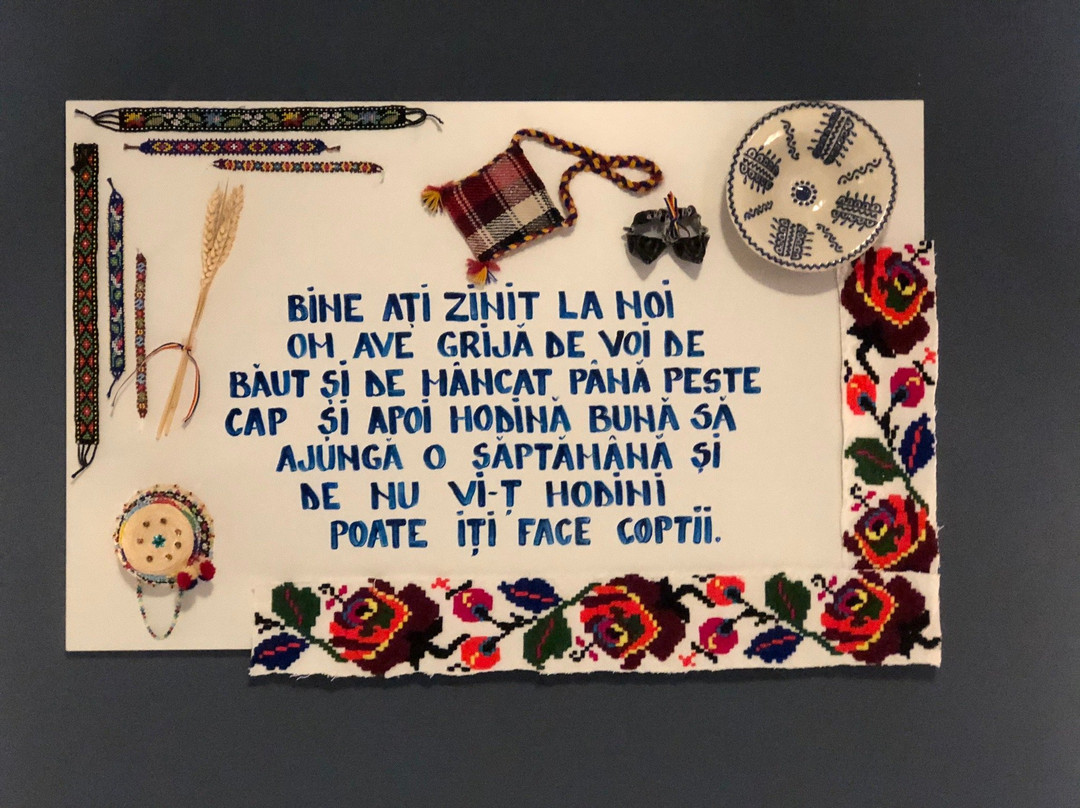 BINE AȚI ZINIT LA NOI
OM AVE GRIJĂ DE VOI DE
BĂUT ȘI DE MÂNCAT PÂNĂ PESTE
CAP ȘI APOI HODINĂ BUNĂ SĂ
AJUNGĂ O SĂPTĂMÂNĂ ȘI
DE NU VI-Ț HODINI
POATE IȚI FACE COPTII.